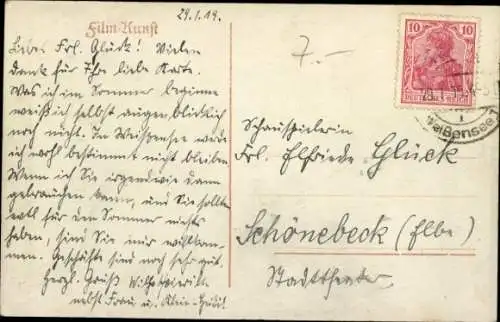 29.1.19.
Film-Kunst
Liebes Frl. Glück! Vielen
dank für Ihre liebe Karte.
Was ich im Sommer beginne
weiß ich selbst augenblicklich
noch nicht. In Weißensee werde
ich wohl bestimmt nicht bleiben
Wenn ich Sie irgendwie dann
gebrauchen kann, und Sie sollten
evtl für den Sommer nichts
haben, sind Sie mir willkom-
men. Geschäfte sind noch sehr gut.
Herzl. Gruß
nebst Frau u. Klein-
7.-
10 10
DEUTSCHES REICH
Weißensee
Schauspielerin
Frl. Elfriede Glück
Schönebeck (Elbe)
Stadttheater